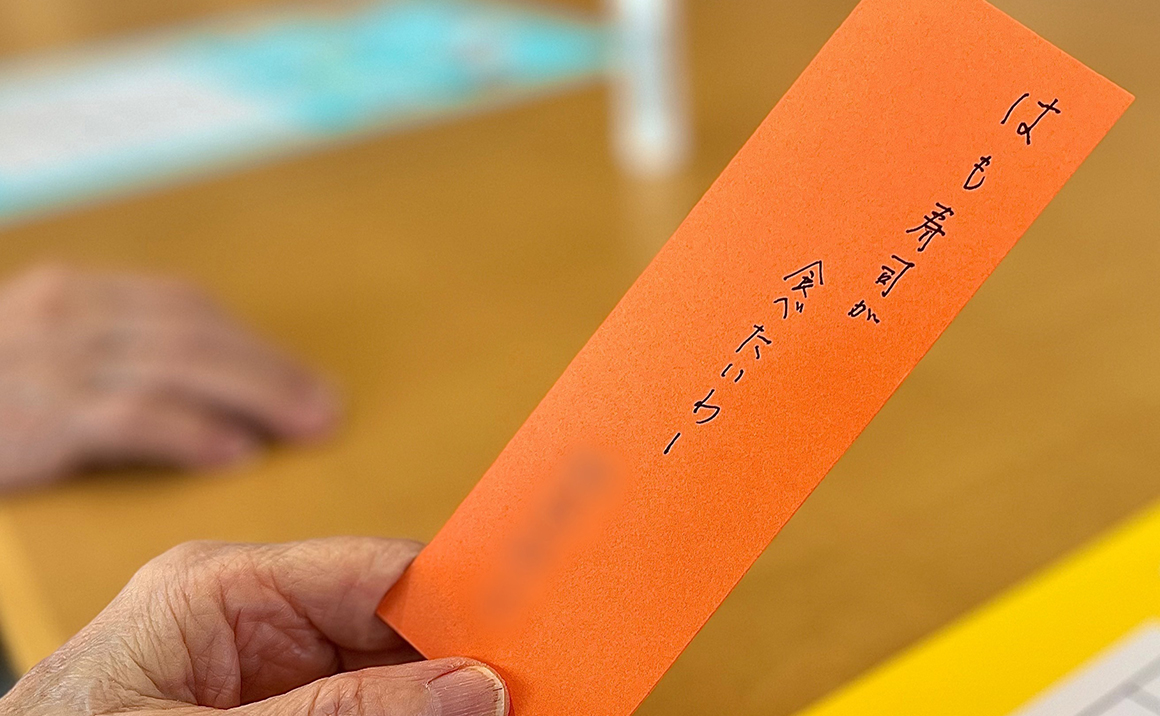 はも寿司が
食べたいわー